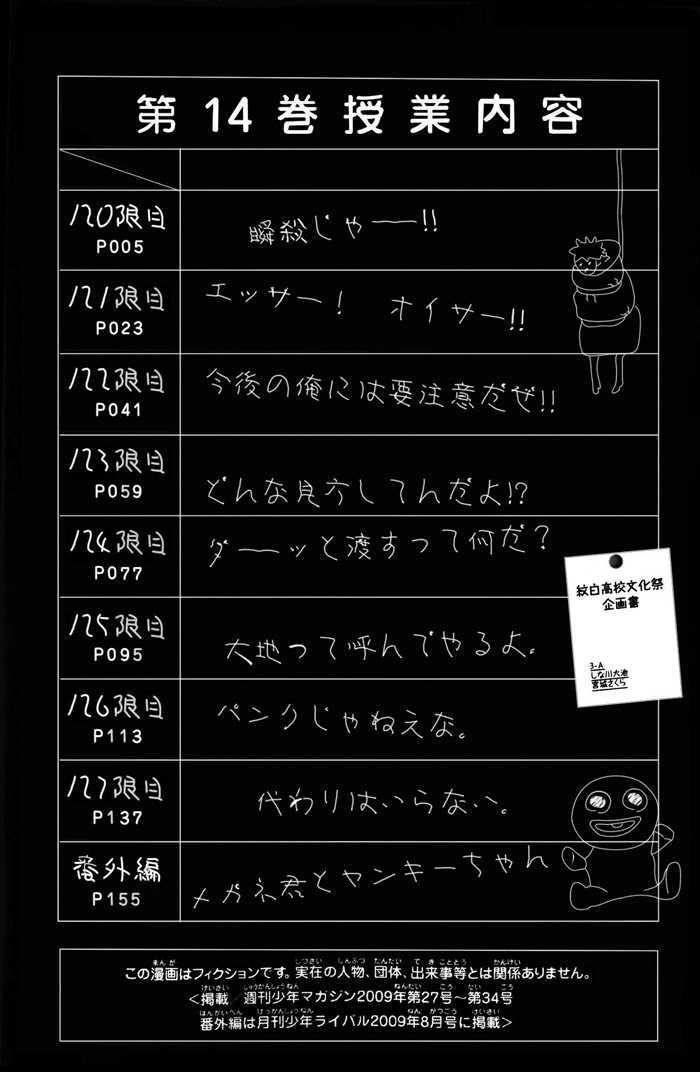 第14巻授業内容
120限目
P005
瞬殺じゃーーー!!
121限目
P023
エッサー! オイサー!!
122限目
P041
今後の俺には要注意だぜ!!
123限目
P059
どんな見方してんだよ!?
124限目
P077
ダーーッと渡すって何だ?
125限目
P095
大地って呼んでやるよ。
126限目
P113
パンクじゃねえな。
127限目
P137
代わりはいらない。
番外編
P155
メガネ君とヤンキーちゃん
紋白高校文化祭
企画書
3-A
しな川大池
宮城さくら
この漫画はフィクションです。実在の人物、団体、出来事等とは関係ありません。
<掲載/週刊少年マガジン2009年第27号〜第34号
番外編は月刊少年ライバル2009年8月号に掲載>